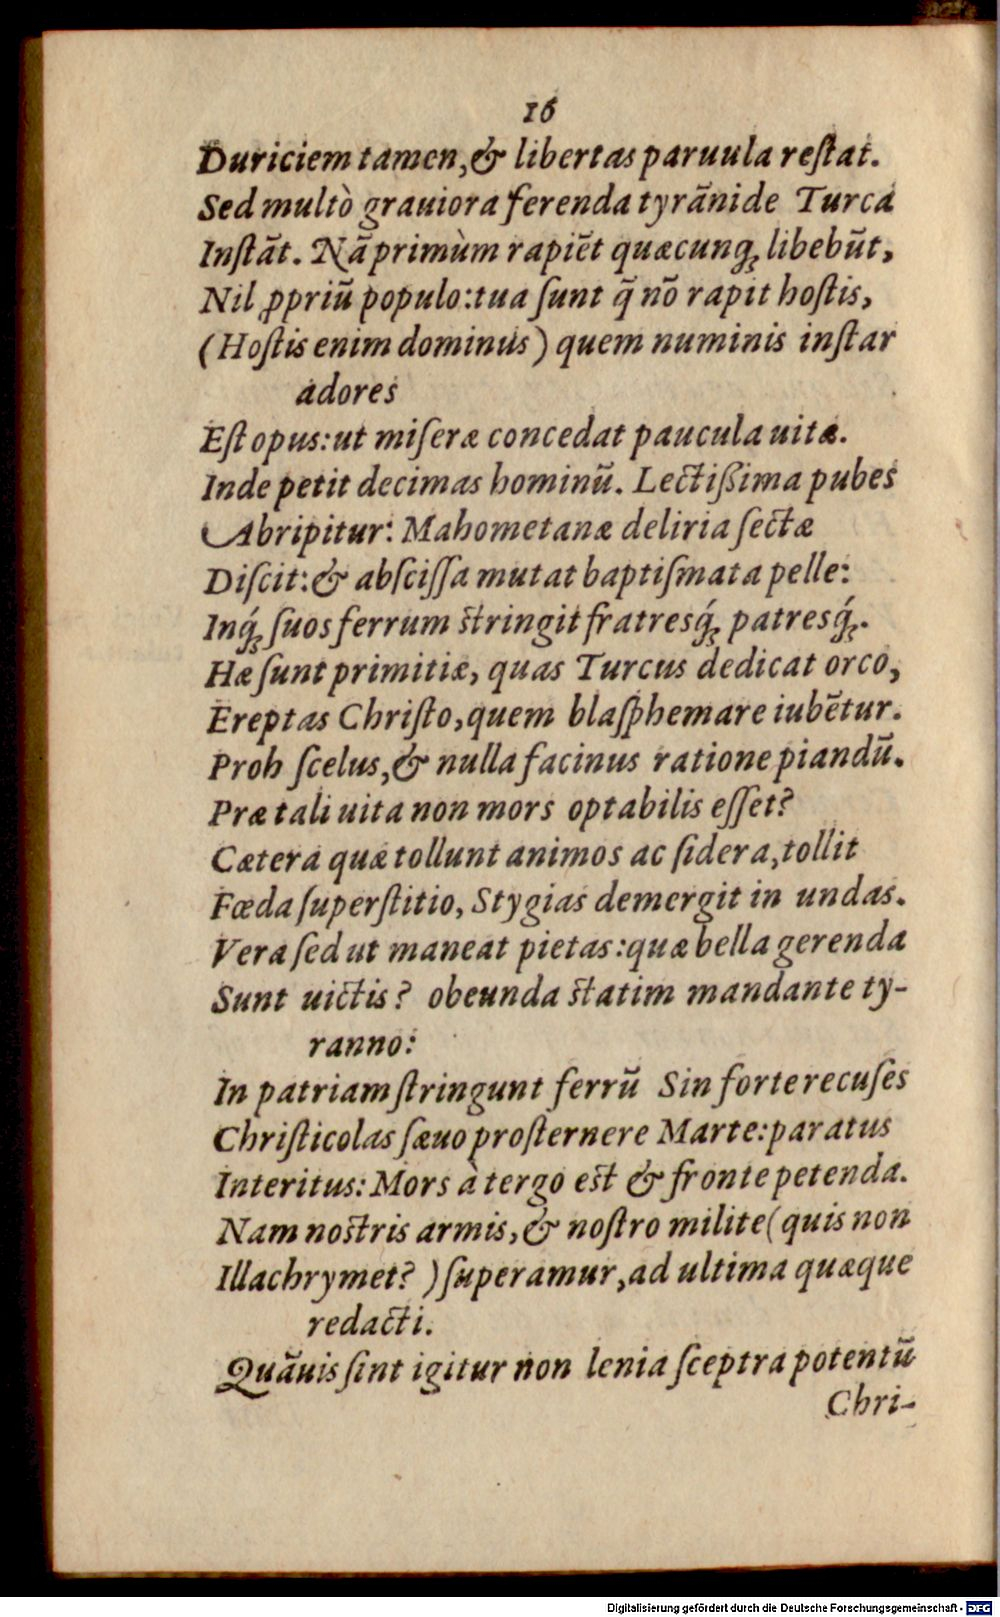 16
Duriciem tamen, & libertas paruula reſtat.
Sed multò grauiora ferenda tyrãnide Turca
Inſtãt. Nã primùm rapiẽt quæcunq; libebũt,
Nil ꝓpriũ populo: tua ſunt q̃ nõ rapit hoſtis,
(Hoſtis enim dominus) quem numinis inſtar
adores
Eſt opus: ut miſeræ concedat paucula uitæ.
Inde petit decimas hominũ. Lectißima pubes
Abripitur: Mahometanæ deliria ſectæ
Diſcit: & abſciſſa mutat baptiſmata pelle:
Inq́; ſuos ferrum ſtringit fratresq́; patresq́;.
Hæ ſunt primitiæ, quas Turcus dedicat orco,
Ereptas Chriſto, quem blaſphemare iubẽtur.
Proh ſcelus, & nulla facinus ratione piandũ.
Præ tali uita non mors optabilis eſſet?
Cætera quæ tollunt animos ac ſidera, tollit
Fœda ſuperſtitio, Stygias demergit in undas.
Vera ſed ut maneat pietas: quæ bella gerenda
Sunt uictis? obeunda ſtatim mandante ty-
ranno:
In patriam ſtringunt ferrũ Sin forte recuſes
Chriſticolas ſæuo proſternere Marte: paratus
Interitus: Mors à tergo eſt & fronte petenda.
Nam noſtris armis, & noſtro milite (quis non
Illachrymet?) ſuperamur, ad ultima quæque
redacti.
Quãuis ſint igitur non lenia ſceptra potentũ
Chri-
Digitalisierung gefördert durch die Deutsche Forschungsgemeinschaft - DFG